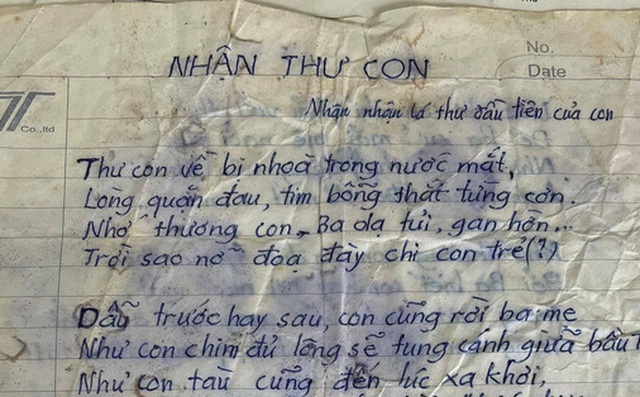 No.
Date
Co.,ltd
NHẬN THƯ CON
Nhận nhận lá thư đầu tiên của con
Thư con về bị nhoà trong nước mắt,
Lòng quặn đau, tim bỗng thắt từng cơn.
Nhớ thương con - Ba dạ tủi, gan hờn...
Trời sao nỡ đoạ đày chi con trẻ (?)
Dẫu trước hay sau, con cũng rời ba mẹ
Như con chim đủ lông sẽ tung cánh giữa bầu
Như con tàu cũng đến lúc xa khơi,